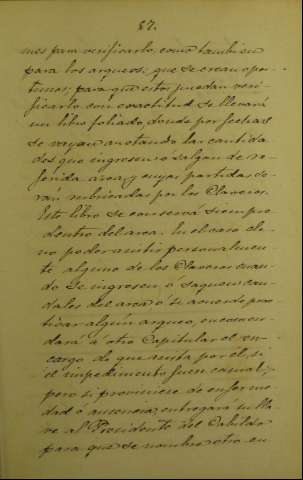 87.
mes para verificarlo, como tambien
para los arqueos; que se crean opor-
tunos; para que estos puedan veri-
ficarlo con exactitud se llevará
un libro foliado, donde por fechas
se vayan anotando las cantida
des que ingresen o salgan de re-
ferida arca, y cuyas partidas se-
rán rubricadas por los Claveros.
Este libro se conservá siempre
dentro del arca. En el caso de
no poder asistir personalmen-
te alguno de los Claveros cuan-
do se ingresen, ó saquen cau-
dales del arca ó se acuerde prac
ticar algún arqueo, encomen-
dará á otro Capitular el en-
cargo de que asista por el, si
el impedimento fuere casual;
pero si proviniere de enferme
dad ó ausencia, entregará su lla-
ve al Presidente del Cabildo
para que se nombre otro en